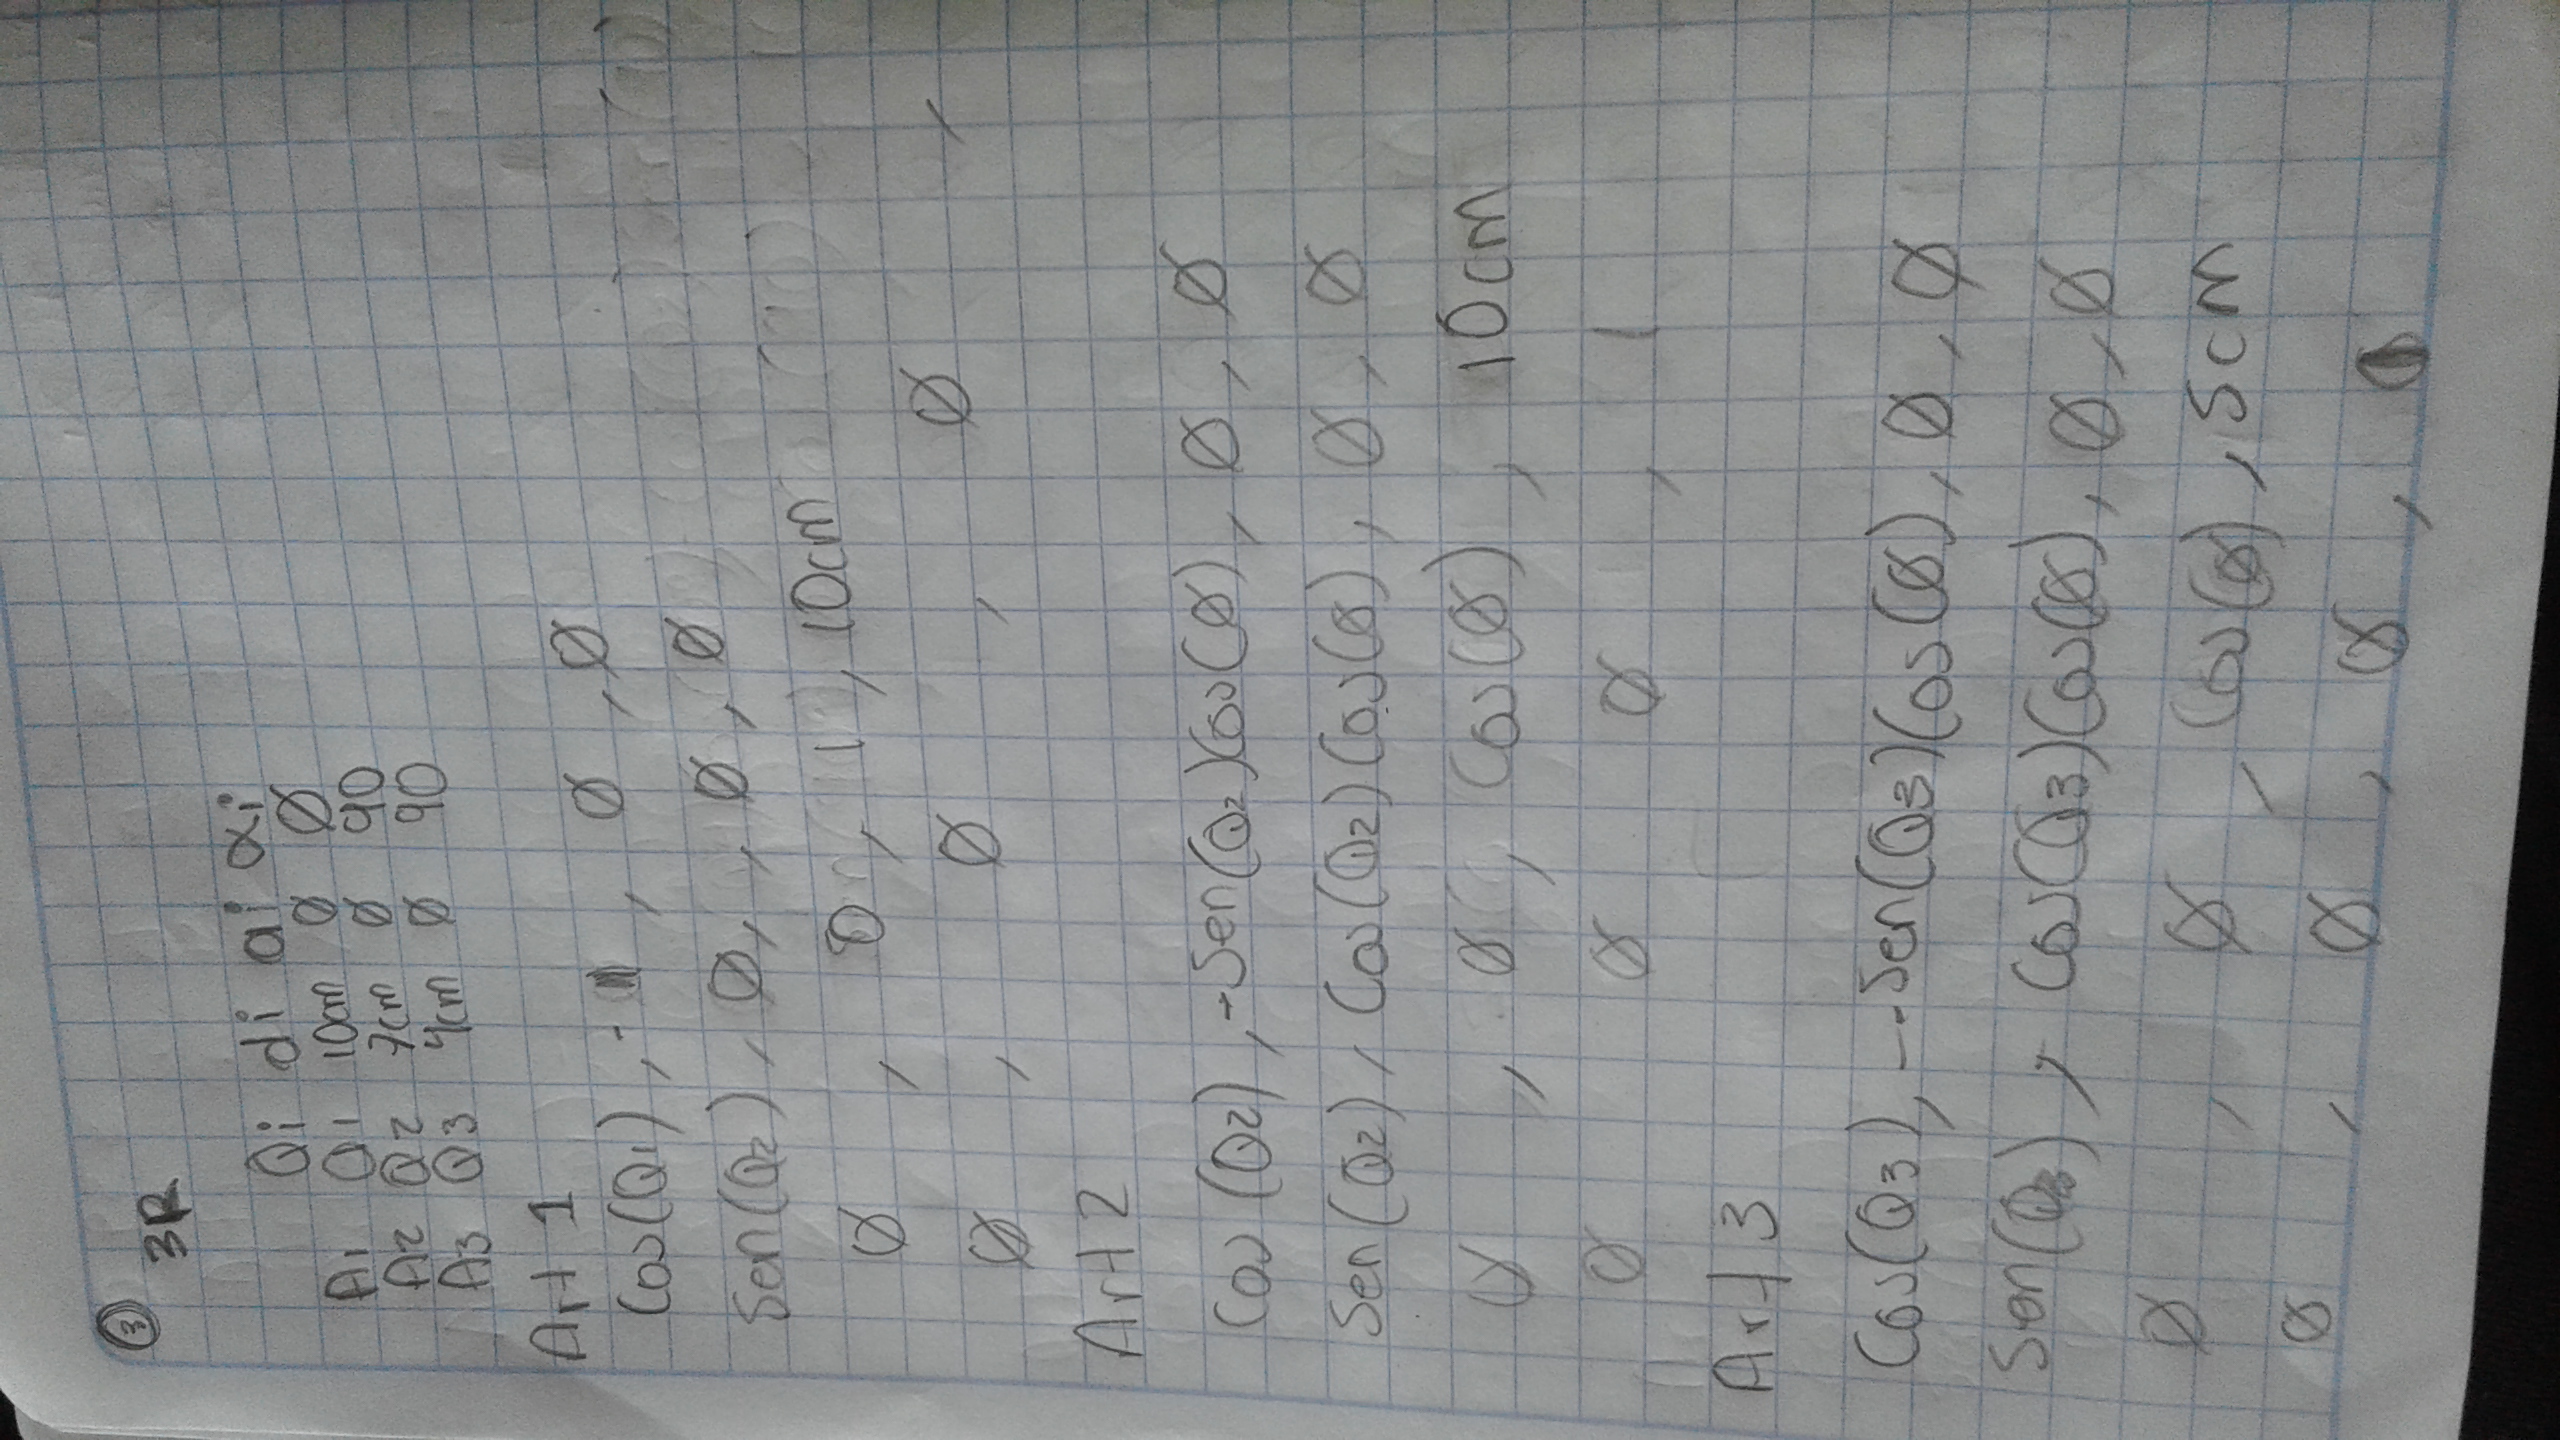 3
3R
Qi di ai αi
A1 Q1 10cm Ø Ø
A2 Q2 7cm Ø 90
A3 Q3 4cm Ø 90
Art 1
Cos(Q1), -1, Ø, Ø
Sen(Q2), Ø, , Ø, Ø
Ø, 0, 1, 10cm
Ø, Ø, Ø,
Art 2
Cos(Q2), -Sen(Q2)Cos(Ø), Ø, Ø
Sen(Q2), Cos(Q2)Cos(Ø), Ø, Ø
Ø, Ø, Cos(Ø), 10cm
Ø Ø Ø, 1
Art 3
Cos(Q3), --Sen(Q3)Cos(Ø), Ø, Ø
Sen(Q3), Cos(Q3)Cos(Ø), Ø, Ø
Ø, Ø, Cos(Ø), 5cm
Ø, Ø, Ø, 1